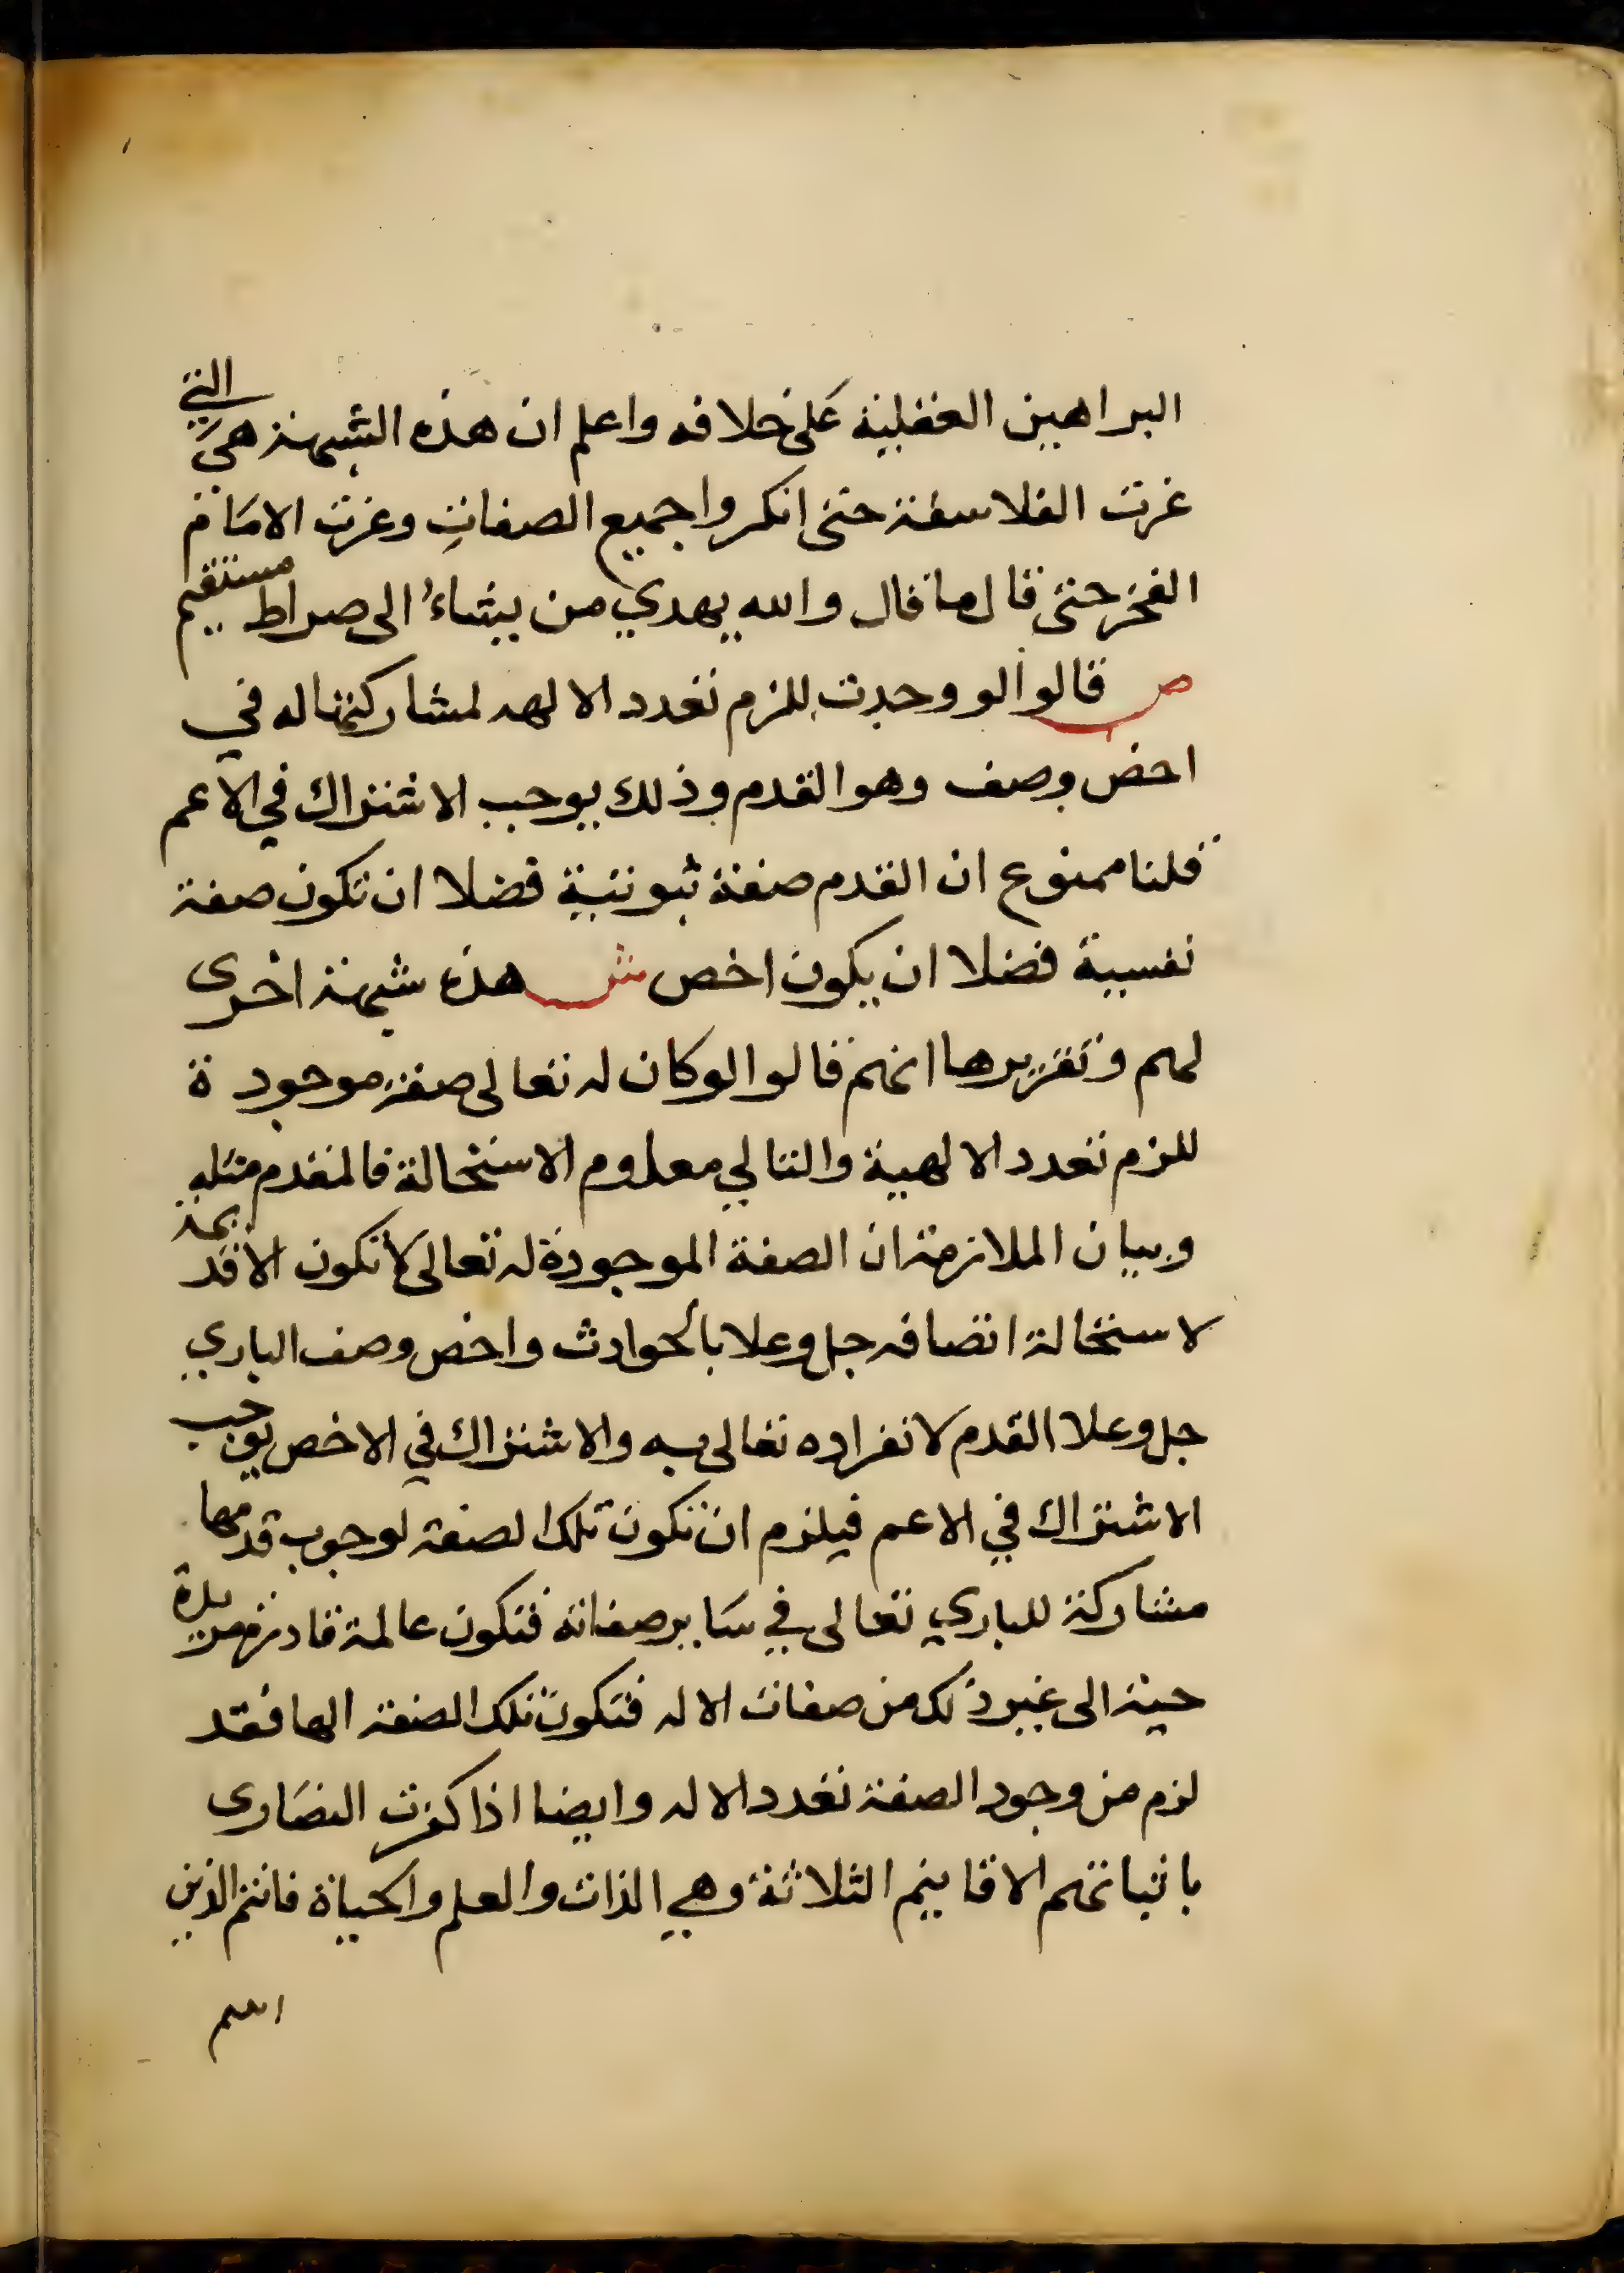 البراهين العقلية على خلافه واعلم ان هذه الشبهة هي التي
غرت الفلاسفة حتى انكروا جميع الصفات وغرت الامام
الفخر حتى قال ما قال والله يهدي من يشاء الى صراط مستقيم
ص قالوا لو وجدت للزم تعدد الالهه لمشاركتها له في
اخص وصف وهو القدم وذلك يوجب الاشتراك في الاعم
قلنا ممنوع ان القدم صفة ثبوتية فضلا ان تكون صفة
نفسية فضلا ان يكون اخص ش هذه شبهة اخرى
لهم وتقريرها انهم قالوا لو كان له تعالى صفة موجودة
للزم تعدد الالهية والتالي معلوم الاستحالة فالمقدم مثله
وبيان الملازمة ان الصفة الموجودة له تعالى لا تكون الا قديمة
لاستحالة اتصافه جل وعلا بالحوادث واخص وصف الباري
جل وعلا القدم لانفراده تعالى به والاشتراك في الاخص يوجب
الاشتراك في الاعم فيلزم ان تكون تلك الصفة لوجوب قدمها
مشاركة للباري تعالى في ساير صفاته فتكون عالمة قادرة مريدة
حية الى غير ذلك من صفات الاله فتكون تلك الصفة الها فقد
لزم من وجود الصفة تعدد الاله وايضا اذا كفرت النصارى
باثباتهم الاقانيم الثلاثة وهي الذات والعلم والحياة فانتم الذين